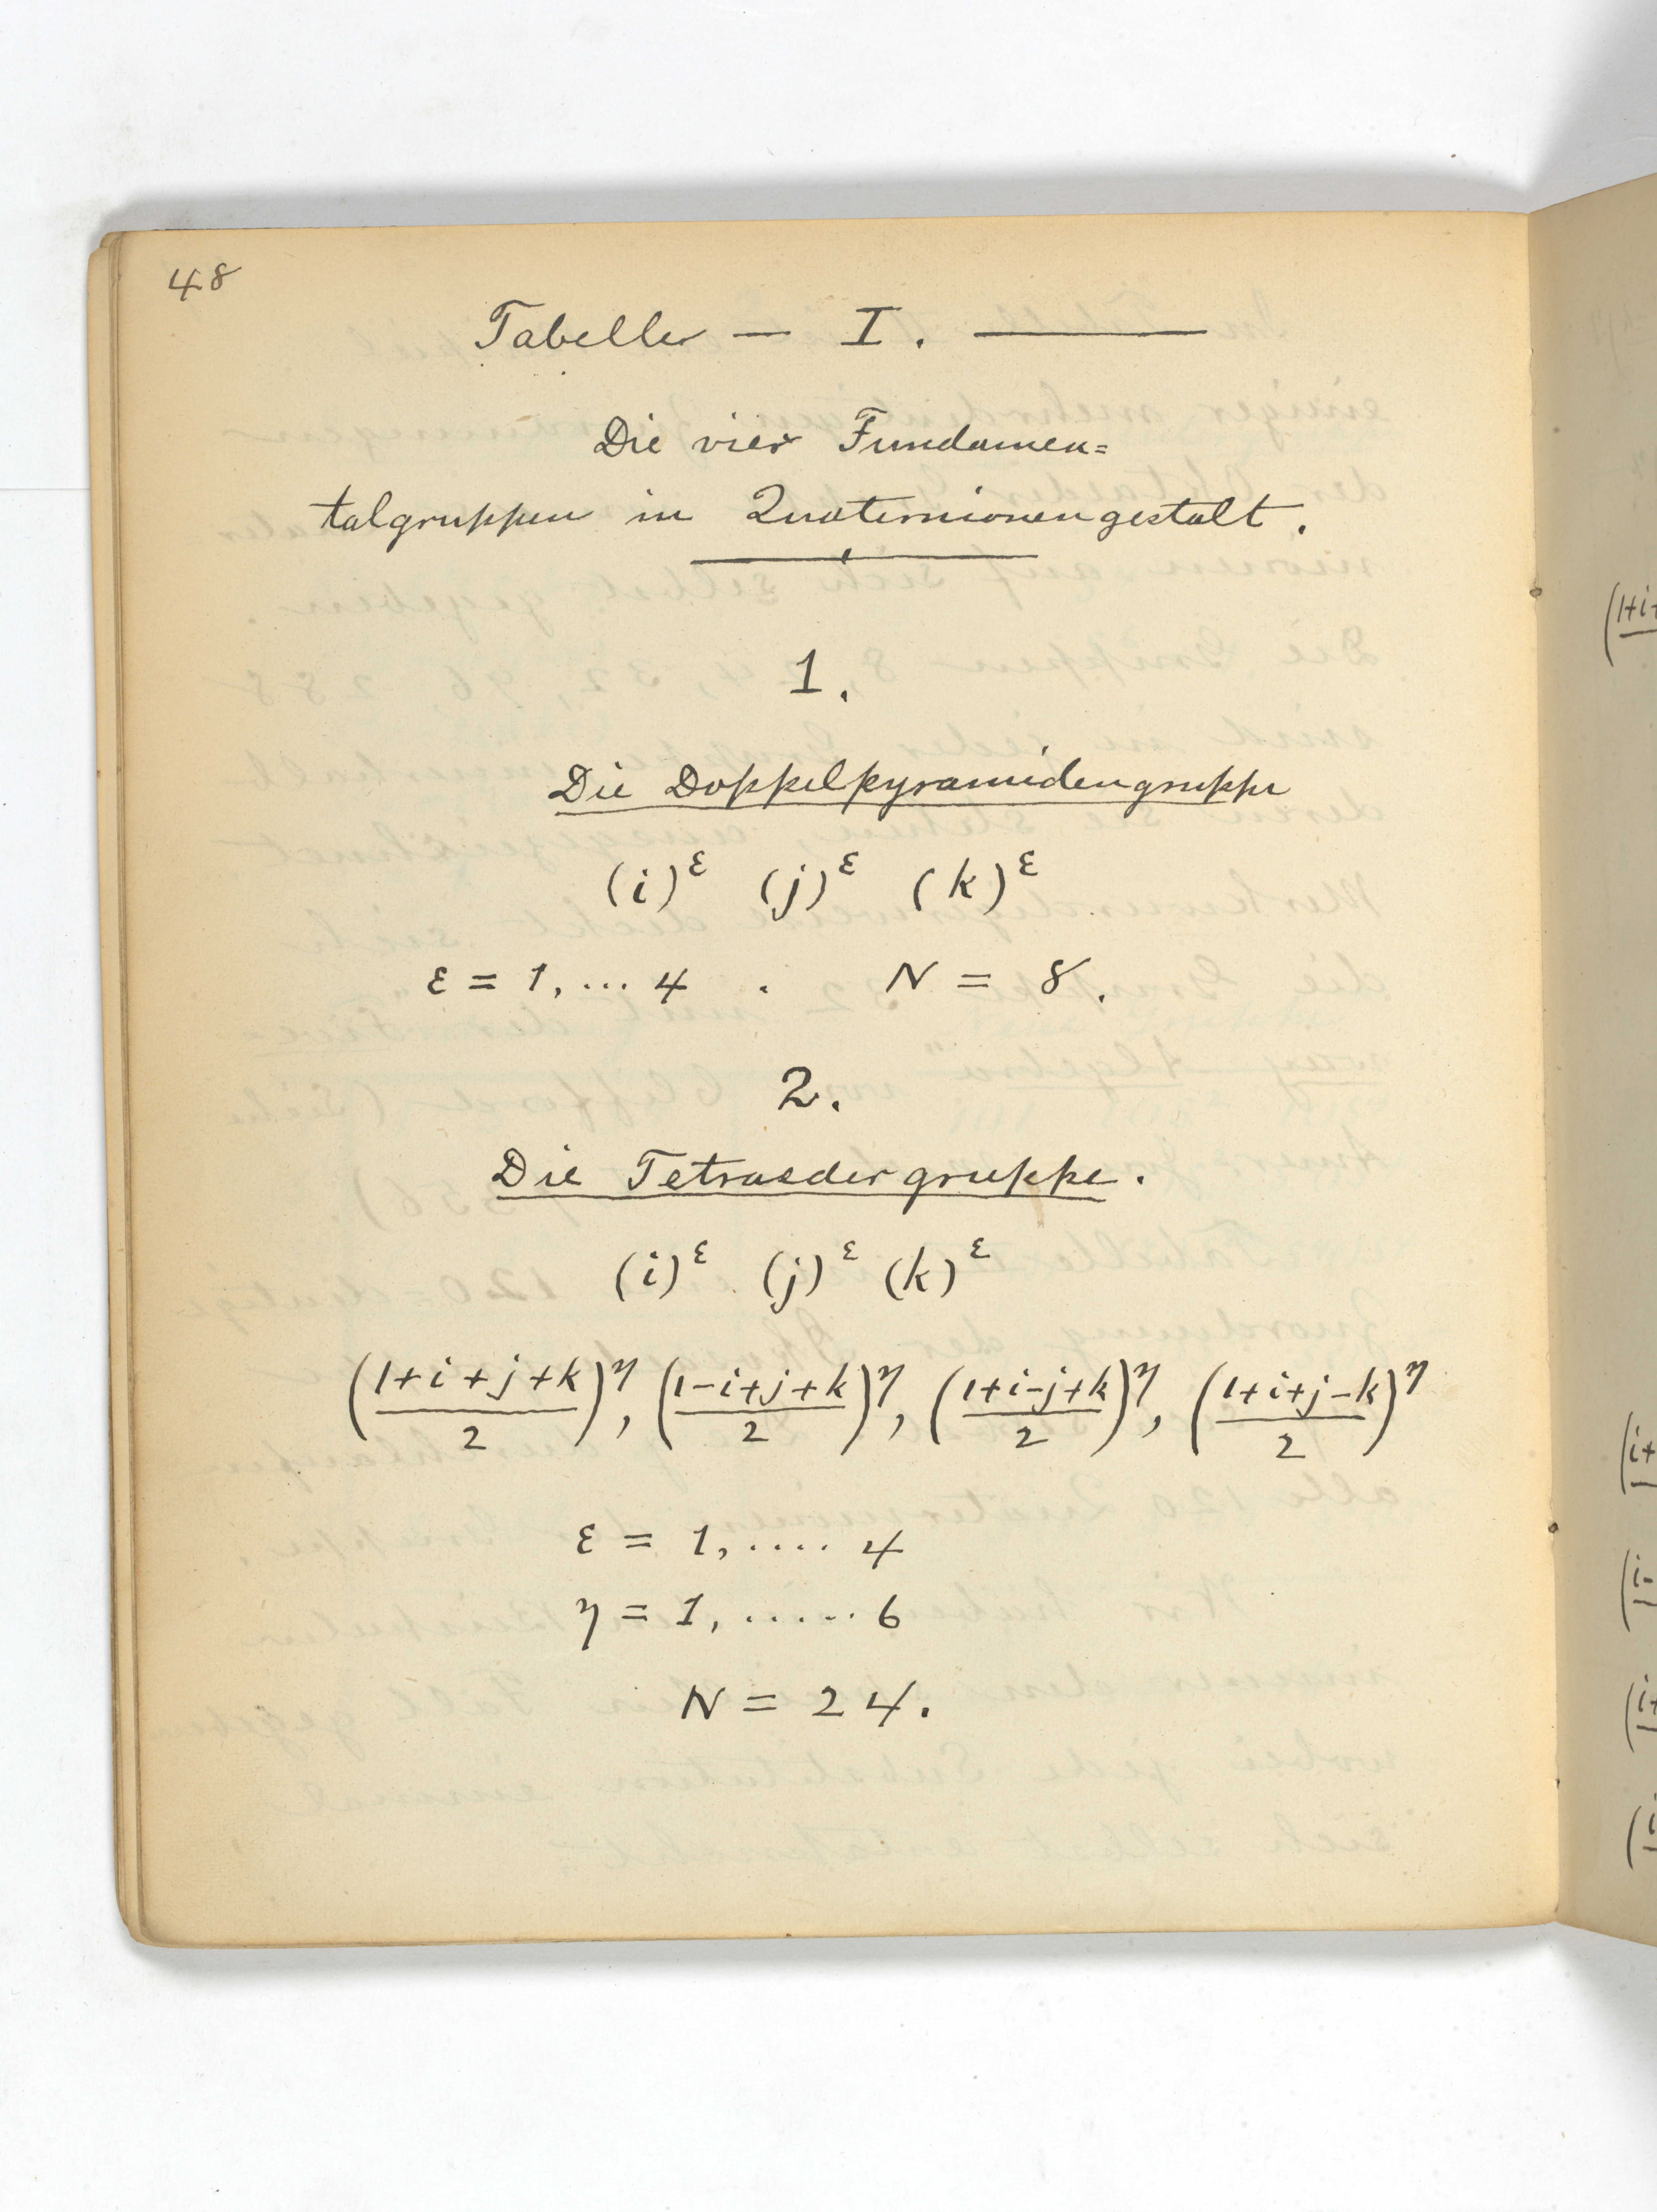 48
Tabelle — I. —
Die vier Fundamen=
talgruppen in Quaternionengestalt.
1.
Die Doppelpyramidengruppe
(i)^ε (j)^ε (k)^ε
ε = 1, ... 4 . N = 8.
2.
Die Tetraedergruppe.
(i)^ε (j)^ε (k)^ε
((1+i+j+k)/2)^η, ((1-i+j+k)/2)^η, ((1+i-j+k)/2)^η, ((1+i+j-k)/2)^η
ε = 1, .... 4
η = 1, ...... 6
N = 24.